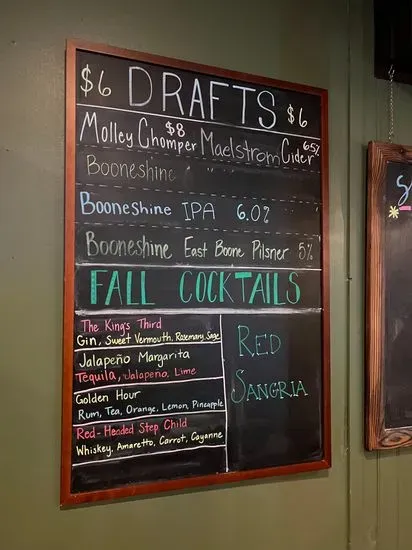 $6 DRAFTS $6
Molley Chomper $8 Maelstrom Cider 6.5%
Booneshine
Booneshine IPA 6.0%
Booneshine East Boone Pilsner 5%
FALL COCKTAILS
The King's Third
Gin, Sweet Vermouth, Rosemary, Sage
Jalapeño Margarita
Tequila, Jalapeño, Lime
Golden Hour
Rum, Tea, Orange, Lemon, Pineapple
Red-Headed Step Child
Whiskey, Amaretto, Carrot, Cayanne
RED
SANGRIA